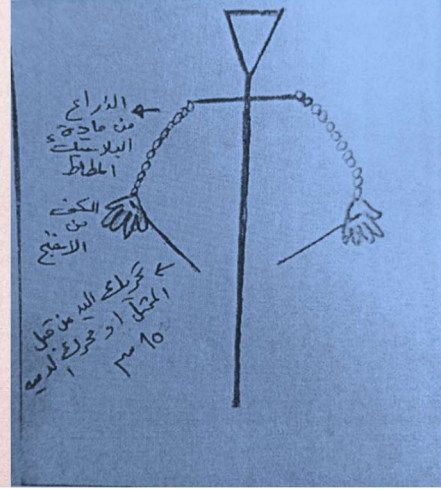 الذراع
من مادة
البلاستيك
المطاط
الكف
من
الاسفنج
تحريك اليد من قبل
الممثل او محرك الدمية
١٥ سم